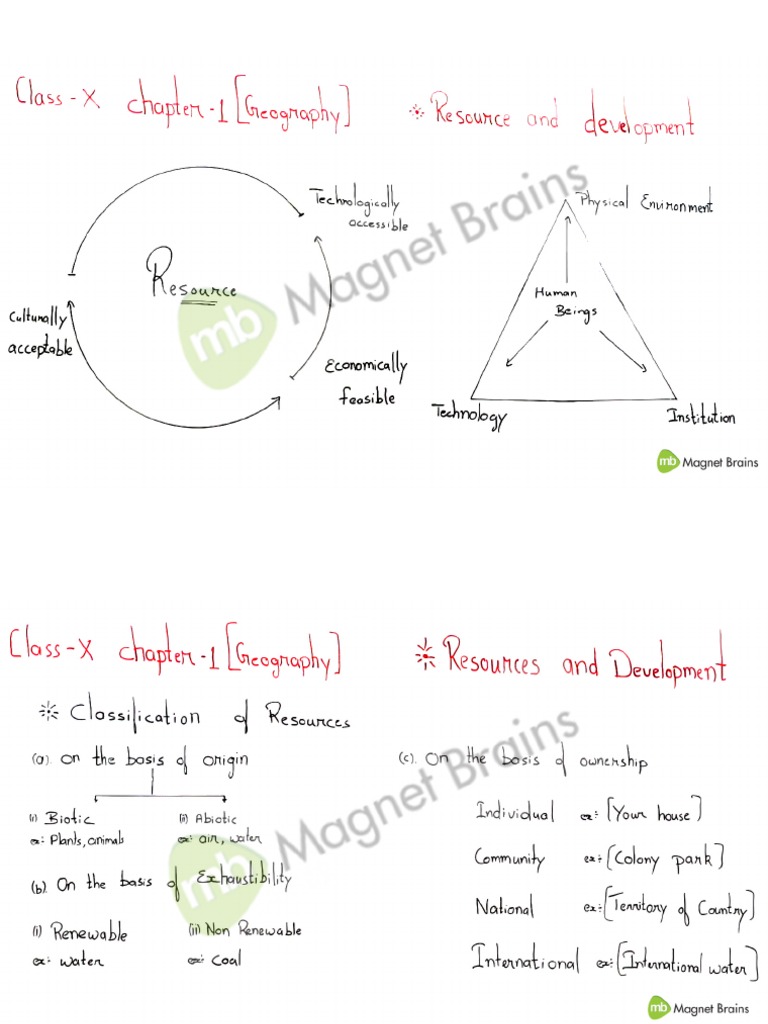 Class-X chapter-1 [Geography]
* Resource and development
Technologically
accessible
Resource
Culturally
acceptable
Economically
feasible
Physical Environment
Human
Beings
Technology
Institution
mb Magnet Brains
mb Magnet Brains
Class-X chapter-1 [Geography]
* Resources and Development
* Classification of Resources
(a). on the basis of origin
(i) Biotic
ex: Plants, animals
(ii) Abiotic
ex: air, water
(b). On the basis of Exhaustibility
(i) Renewable
ex: water
(ii) Non Renewable
ex: coal
(c). On the basis of ownership
Individual ex: [Your house]
Community ex: [Colony park]
National ex: [Territory of Country]
International ex: [International water]
mb Magnet Brains
mb Magnet Brains